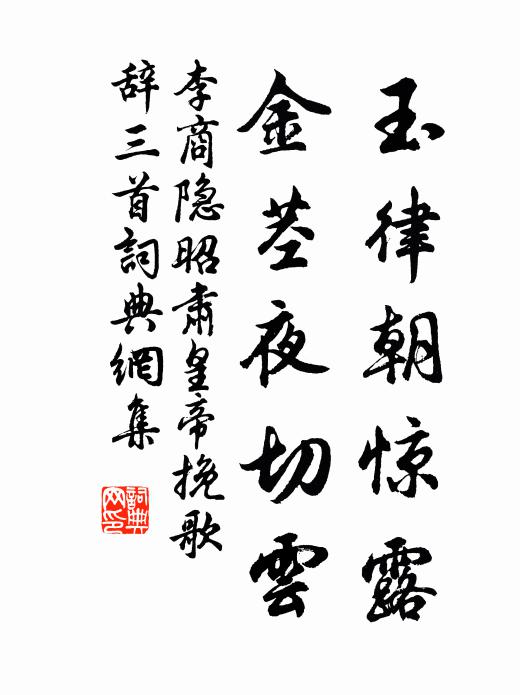 玉律朝惊露
金茎夜切雲
李商隐昭肅皇帝挽歌
辞三首詞典網集
詞典网印